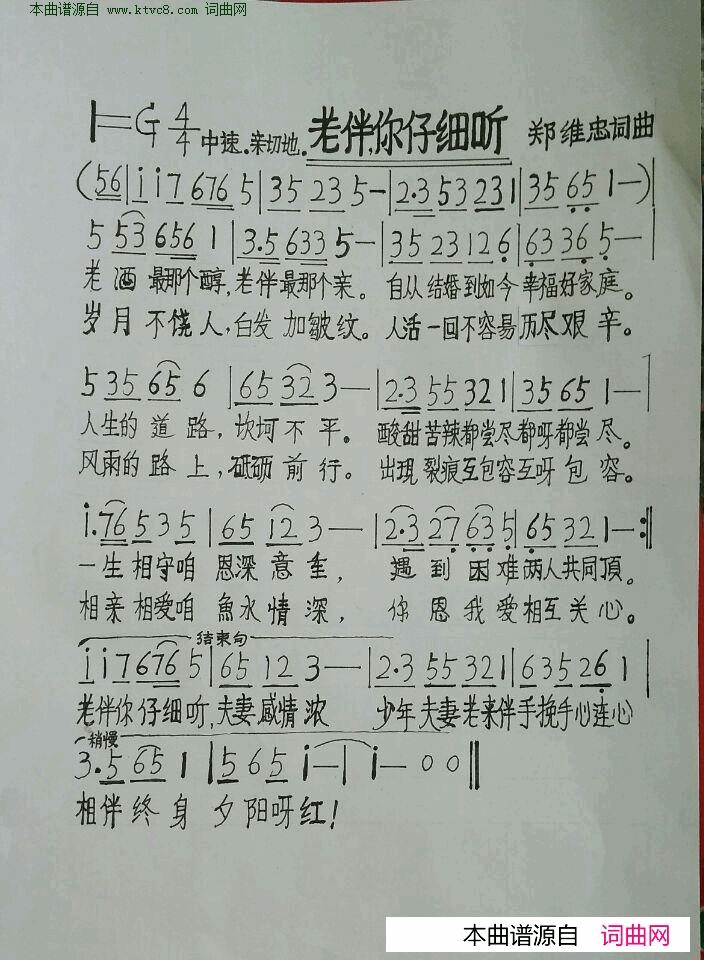 本曲谱源自 www.ktvc8.com 词曲网
1=G 4/4 中速.亲切地. 老伴,你仔细听 郑维忠词曲
(56|i i7 676 5|35 23 5-|2.3 53 231|35 65 1—)
5 53 656 1|3.5 633 5—|35 23 12 6|63 36 5—
老酒最那个醇,老伴最那个亲。自从结婚到如今幸福好家庭。
岁月不饶人,白发加皱纹。人活一回不容易历尽艰辛。
5 35 65 6|65 32 3—|2.3 55 32 1|35 65 1—|
人生的道路,坎坷不平。酸甜苦辣都尝尽都呀都尝尽。
风雨的路上,砥砺前行。出現裂痕互包容互呀包容。
i.76 5 35|65 i2 3—|2.3 27 63 5|65 32 1—:||
一生相守咱恩深意重,遇到困难两人共同頂。
相亲相爱咱魚水情深,你恩我爱相互关心。
结束句
i i7 676 5|65 12 3—|2.3 55 321|635 26 1|
老伴你仔细听,夫妻感情浓 少年夫妻老来伴手挽手心连心
稍慢
3.5 65 1|5 65 i—|i—00||
相伴终身夕阳呀红!
本曲谱源自 词曲网